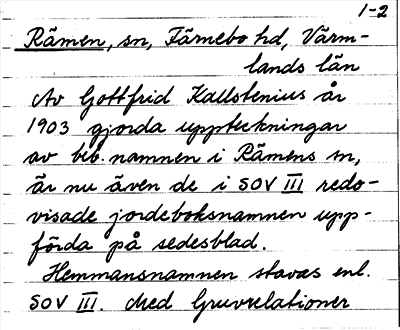 1-2
Rämen, sn, Färnebo hd, Värm-
lands län
Av Gottfrid Kallstenius år
1903 gjorda uppteckningar
av beb. namnen i Rämens sn,
är nu även de i SOV III redo-
visade jordeboksnamnen upp-
förda på sedesblad.
Hemmansnamnen stavas enl.
SOV III. Med Gruvrelationer